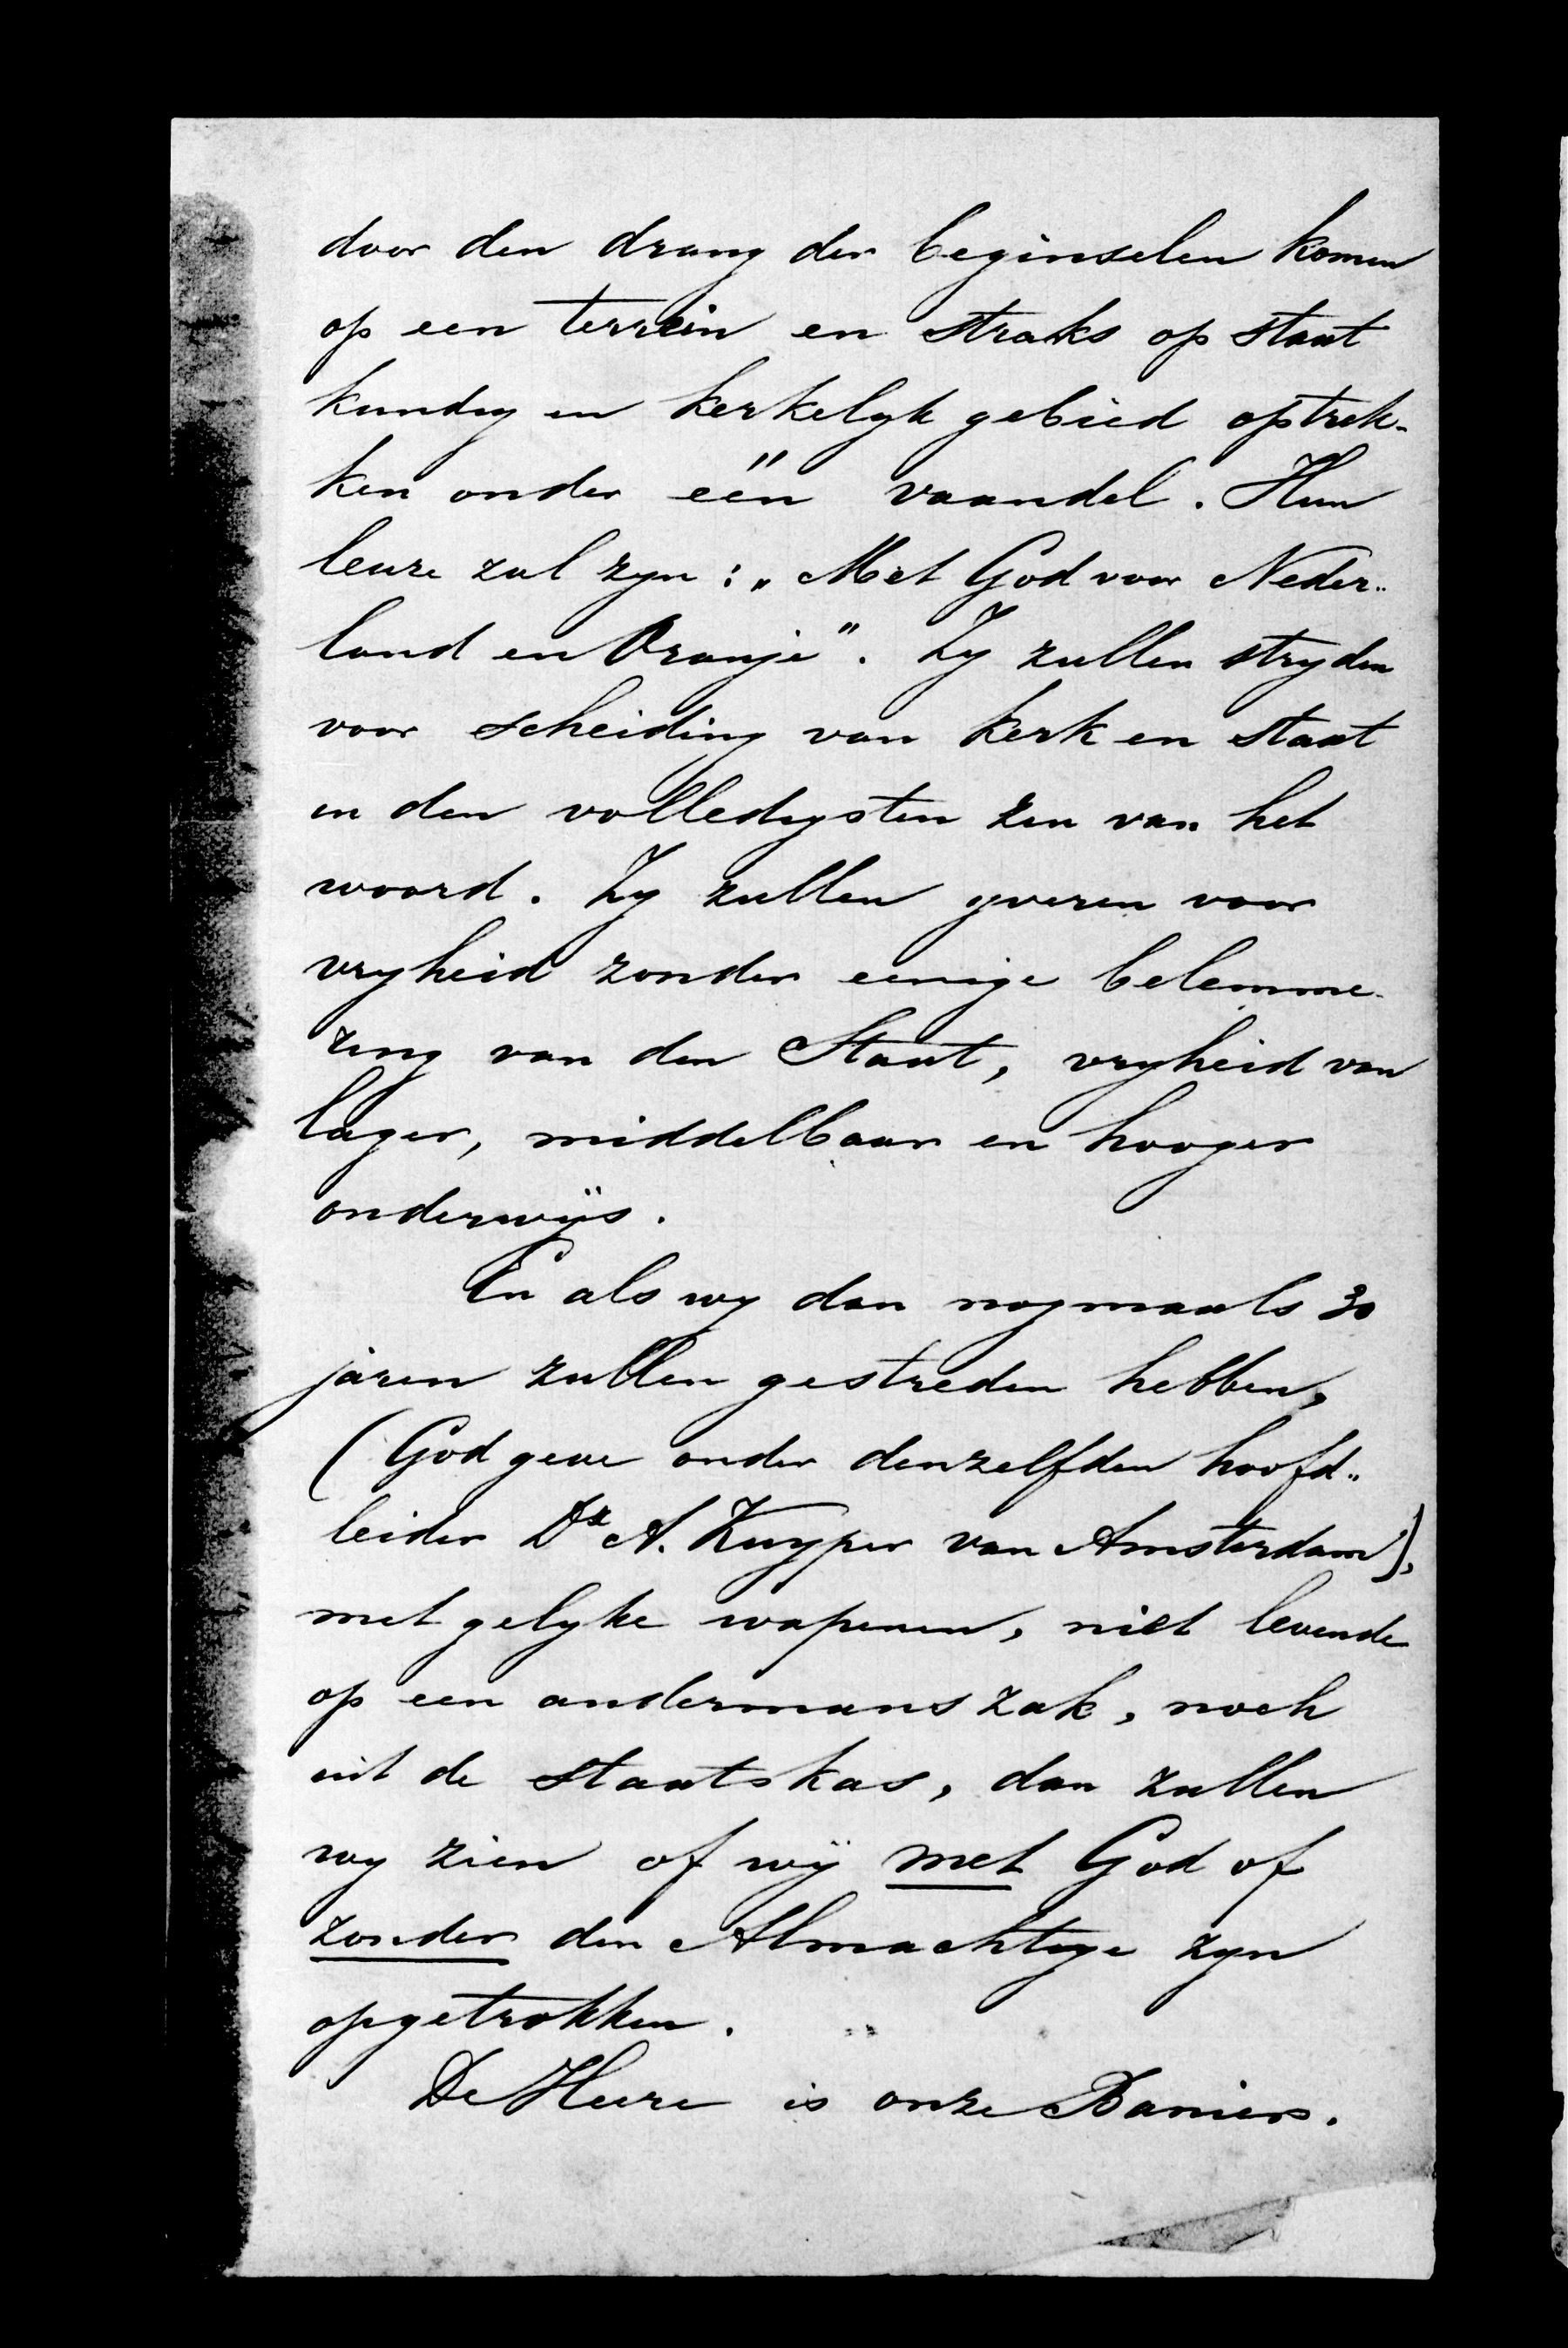 door den drang der beginselen komen
op een terrein en straks op staat
kundig en kerkelyk gebied optrek-
ken onder één vaandel. Hun
leuze zal zyn: „Met God voor Neder-
land en Oranje". Zy zullen stryden
voor scheiding van kerk en staat
in den volledigsten zin van het
woord. Zy zullen yveren voor
vryheid zonder eenige belemme-
ring van den Staat, vryheid van
lager, middelbaar en hooger
onderwijs.
En als wy dan nogmaals 30
jaren zullen gestreden hebben,
(God geve onder denzelfden hoofd-
leider Dr A. Kuyper van Amsterdam),
met gelyke wapenen, niet levende
op een andermans zak, noch
uit de staatskas, dan zullen
wy zien of wij met God of
zonder den Almachtige zyn
opgetrokken.
De Heere is onze Banier.